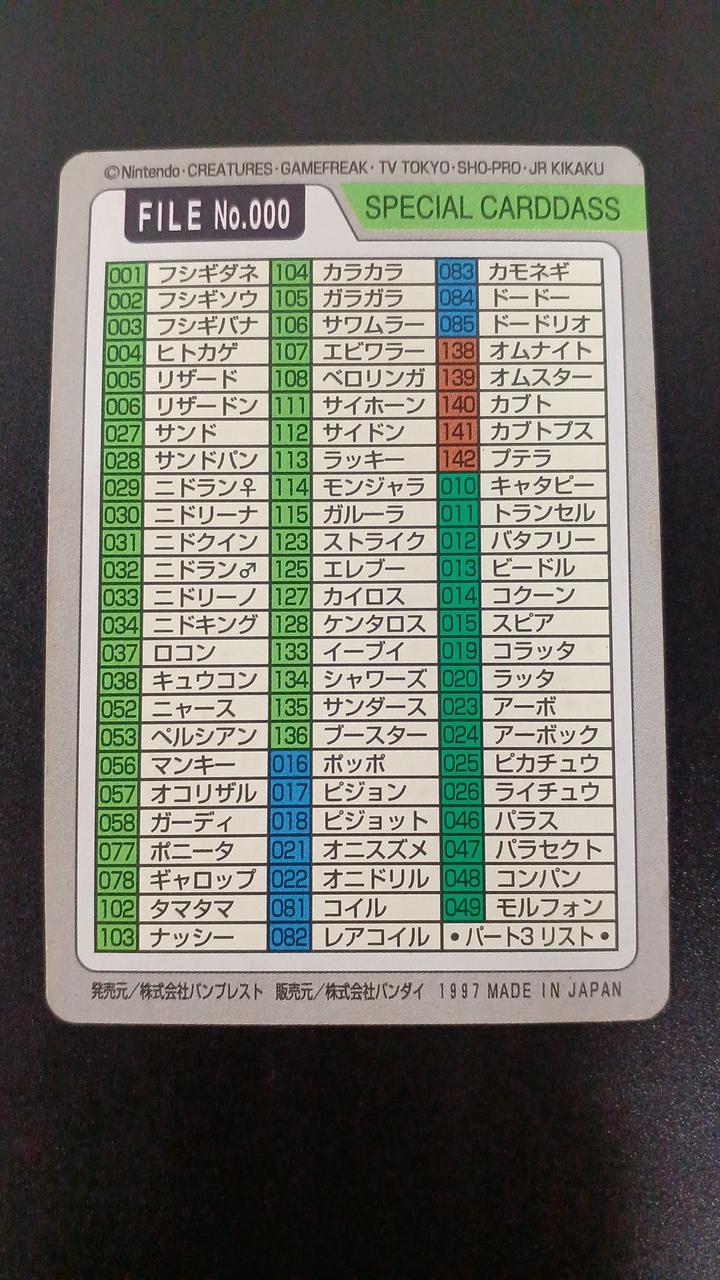 ©Nintendo・CREATURES・GAMEFREAK・TV TOKYO・SHO-PRO・JR KIKAKU
FILE No.000
SPECIAL CARDDASS
001 フシギダネ 104 カラカラ 083 カモネギ
002 フシギソウ 105 ガラガラ 084 ドードー
003 フシギバナ 106 サワムラー 085 ドードリオ
004 ヒトカゲ 107 エビワラー 138 オムナイト
005 リザード 108 ベロリンガ 139 オムスター
006 リザードン 111 サイホーン 140 カブト
027 サンド 112 サイドン 141 カブトプス
028 サンドパン 113 ラッキー 142 プテラ
029 ニドラン♀ 114 モンジャラ 010 キャタピー
030 ニドリーナ 115 ガルーラ 011 トランセル
031 ニドクイン 123 ストライク 012 バタフリー
032 ニドラン♂ 125 エレブー 013 ビードル
033 ニドリーノ 127 カイロス 014 コクーン
034 ニドキング 128 ケンタロス 015 スピア
037 ロコン 133 イーブイ 019 コラッタ
038 キュウコン 134 シャワーズ 020 ラッタ
052 ニャース 135 サンダース 023 アーボ
053 ペルシアン 136 ブースター 024 アーボック
056 マンキー 016 ポッポ 025 ピカチュウ
057 オコリザル 017 ピジョン 026 ライチュウ
058 ガーディ 018 ピジョット 046 パラス
077 ポニータ 021 オニスズメ 047 パラセクト
078 ギャロップ 022 オニドリル 048 コンパン
102 タマタマ 081 コイル 049 モルフォン
103 ナッシー 082 レアコイル •パート3 リスト•
発売元/株式会社バンプレスト 販売元/株式会社バンダイ 1997 MADE IN JAPAN